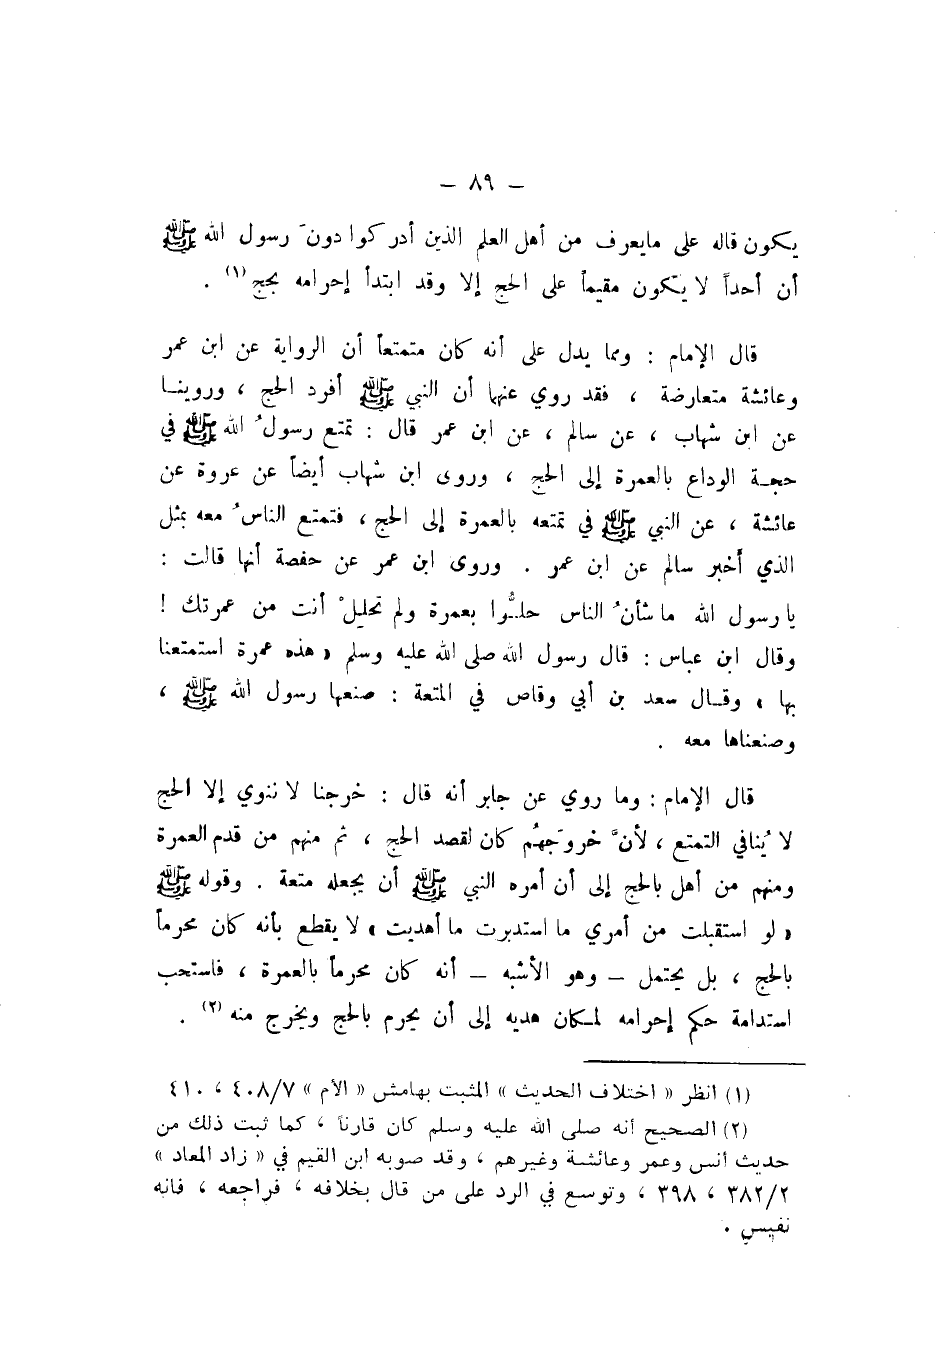 – ٨٩ –
يكون قاله على مايعرف من أهل العلم الذين أدركوا دونَ رسول الله ﷺ
أن أحداً لا يكون مقيماً على الحج إلا وقد ابتدأ إحرامه بحج(١) .
قال الإمام : ومما يدل على أنه كان متمتعاً أن الرواية عن ابن عمر
وعائشة متعارضة ، فقد روي عنها أن النبي ﷺ أفرد الحج ، وروينـا
عن ابن شهاب ، عن سالم ، عن ابن عمر قال : تمتع رسولُ الله ﷺ في
حجـة الوداع بالعمرة إلى الحج ، وروى ابن شهاب أيضاً عن عروة عن
عائشة ، عن النبي ﷺ في تمتعه بالعمرة إلى الحج ، فتمتع الناسُ معه بمثل
الذي أَخبر سالم عن ابن عمر . وروى ابن عمر عن حفصة أنها قالت :
يا رسول الله ما شأنُ الناس حلُّوا بعمرة ولم تحليلْ أنت من عمرتك !
وقال ابن عباس : قال رسول الله صلى الله عليه وسلم « هذه عمرة استمتعنا
بها » وقـال سعد بن أبي وقاص في المتعة : صنعها رسول الله ﷺ ،
وصنعناها معه .
قال الإمام : وما روي عن جابر أنه قال : خرجنا لا ننوي إلا الحج
لا يُنافي التمتع ، لأنَّ خروجَهُم كان لقصد الحج ، ثم منهم من قدم العمرة
ومنهم من أهل بالحج إلى أن أمره النبي ﷺ أن يجعله متعة . وقوله ﷺ
« لو استقبلت من أمري ما استدبرت ما أهديت » لا يقطع بأنه كان محرماً
بالحج ، بل يحتمل – وهو الأشبه – أنه كان محرماً بالعمرة ، فاستحب
استدامة حكم إحرامه لمكان هديه إلى أن يحرم بالحج ويخرج منه (٢) .
(١) انظر « اختلاف الحديث » المثبت بهامش « الأم » ٤٠٨/٧ ، ٤١٠
(٢) الصحيح أنه صلى الله عليه وسلم كان قارنا ، كما ثبت ذلك من
حديث أنس وعمر وعائشة وغيرهم ، وقد صوبه ابن القيم في « زاد المعاد »
٣٨٢/٢ ، ٣٩٨ ، وتوسع في الرد على من قال بخلافه ، فراجعه ، فانه
نفيس .